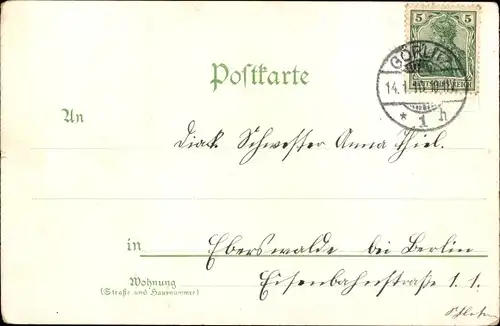 5 5
GÖRLITZ
DEUTSCHES REICH
14.1.
* 1 h
Postkarte
An
Diak. Schwester Anna Thiel.
in Eberswalde bei Berlin
Wohnung
(Straße und Hausnummer)
Eisenbahnstraße 11.